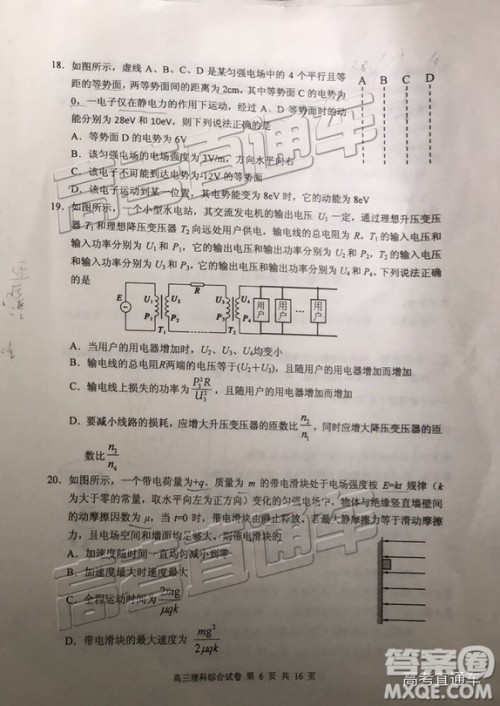 18. 如图所示，虚线 A、B、C、D 是某匀强电场中的 4 个平行且等
距的等势面，两等势面间的距离为2cm，其中等势面 C 的电势为
0，一电子仅在静电力的作用下运动，经过 A、D 等势面时的动
能分别为 28eV 和 10eV，则下列说法正确的是
A B C D
A. 等势面 D 的电势为 6V
B. 该匀强电场的电场强度为 3V/m，方向水平向右
C. 该电子不可能到达电势为-12V 的等势面
D. 该电子运动到某一位置，其电势能变为 8eV 时，它的动能为 8eV
19. 如图所示，一个小型水电站，其交流发电机的输出电压 U1 一定，通过理想升压变压
器 T1 和理想降压变压器 T2 向远处用户供电，输电线的总电阻为 R。T1 的输入电压和
输入功率分别为 U1 和 P1，它的输出电压和输出功率分别为 U2 和 P2；T2 的输入电压
和输入功率分别为 U3 和 P3，它的输出电压和输出功率分别为 U4 和 P4，下列说法正确
的是
E U1 U2 R U3 U4 用户 用户 用户
P1 P2 P3 P4
T1 T2
A. 当用户的用电器增加时，U2、U3、U4均变小
B. 输电线的总电阻 R两端的电压等于(U2+U3)，且随用户的用电器增加而增加
C. 输电线上损失的功率为 P3²R/U3²，且随用户的用电器增加而增加
D. 要减小线路的损耗，应增大升压变压器的匝数比 n2/n1，同时应增大降压变压器的匝
数比 n3/n4
20. 如图所示，一个带电荷量为+q、质量为 m 的带电滑块处于电场强度按 E=kt 规律（k
为大于零的常量，取水平向左为正方向）变化的匀强电场中，物体与绝缘竖直墙壁间
的动摩擦因数为 μ，当 t=0 时，带电滑块由静止释放。若最大静摩擦力等于滑动摩擦
力，且电场空间和墙面均足够大，则带电滑块的
A. 加速度随时间一直均匀减小到零
B. 加速度最大时速度最大
C. 全程运动时间为 2mg/μqk
D. 带电滑块的最大速度为 mg²/2μqk
高三理科综合试卷 第 6 页 共 16 页
高考直通车
高考直通车
答案圈
高考直通车
MXQE.COM